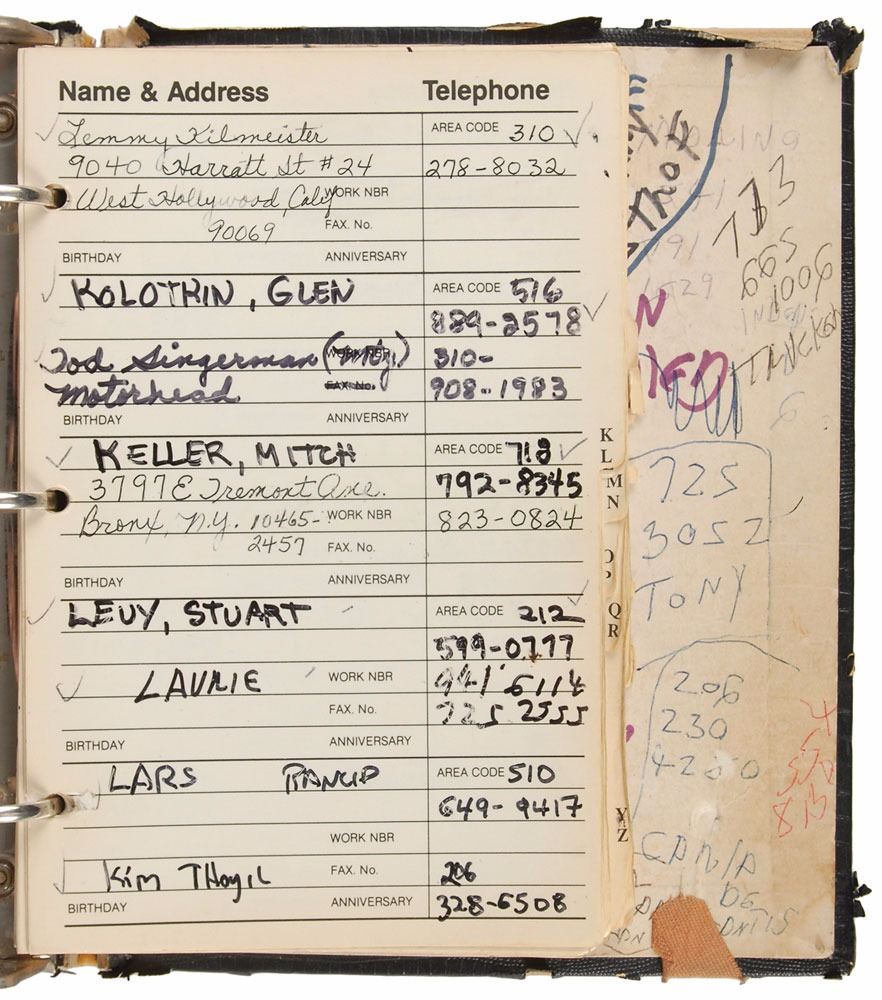 Name & Address Telephone
Lemmy Kilmeister AREA CODE 310
9040 Harratt St #24 278-8032
West Hollywood, Calif WORK NBR
90069 FAX. No.
BIRTHDAY ANNIVERSARY
KOLOTKIN, GLEN AREA CODE 516
889-2578
Tod Singerman 310-
Motorhead FAX. No. 908-1983
BIRTHDAY ANNIVERSARY
KELLER, MITCH AREA CODE 718
3797 E Tremont Ave. 792-8345
Bronx, N.Y. 10465- WORK NBR 823-0824
2457 FAX. No.
BIRTHDAY ANNIVERSARY
LEVY, STUART AREA CODE 212
599-0777
LAURIE WORK NBR 941 6114
FAX. No. 725 2555
BIRTHDAY ANNIVERSARY
LARS RANCID AREA CODE 510
649-9417
WORK NBR
Kim THAyIL FAX. No. 206
BIRTHDAY ANNIVERSARY 328-6508
K
L
M
N
O
P
Q
R
Y
Z
713
665
1006
725
3052
TONY
206
230